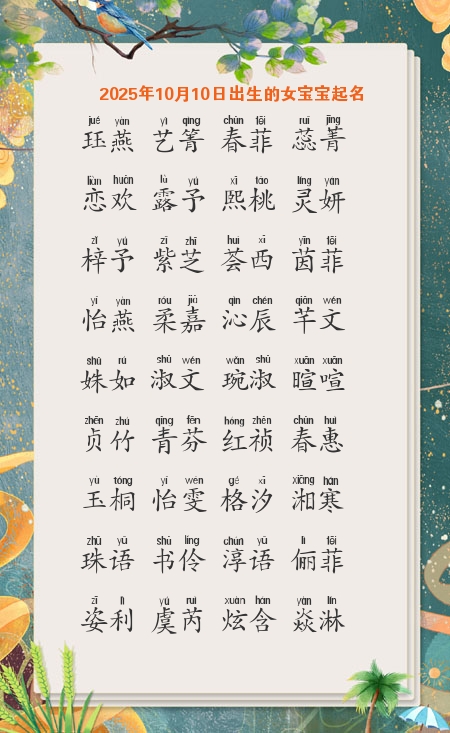 2025年10月10日出生的女宝宝起名
jué yàn yì qìng chūn fēi ruǐ jīng
珏燕 艺箐 春菲 蕊菁
liàn huān lù yú xī táo líng yán
恋欢 露予 熙桃 灵妍
zǐ yú zǐ zhī huì xī yīn fēi
梓予 紫芝 荟西 茵菲
yí yàn róu jiā qìn chén qiān wén
怡燕 柔嘉 沁辰 芊文
shū rú shū wén wǎn shū xuān xuān
姝如 淑文 琬淑 暄喧
zhēn zhú qīng fēn hóng zhēn chūn huì
贞竹 青芬 红祯 春惠
yù tóng yí wén gé xī xiāng hán
玉桐 怡雯 格汐 湘寒
zhū yǔ shū líng chún yǔ lì fēi
珠语 书伶 淳语 俪菲
zī lì yú ruì xuàn hán yàn lín
姿利 虞芮 炫含 焱淋